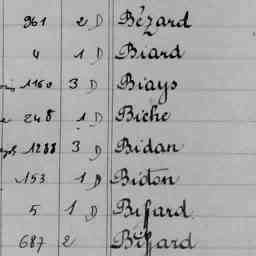 961 2 D Bézard
4 1 D Biard
1160 3 D Biays
248 1 D Biche
1288 3 D Bidan
153 1 D Bidon
5 1 D Biffard
687 2 Biffard